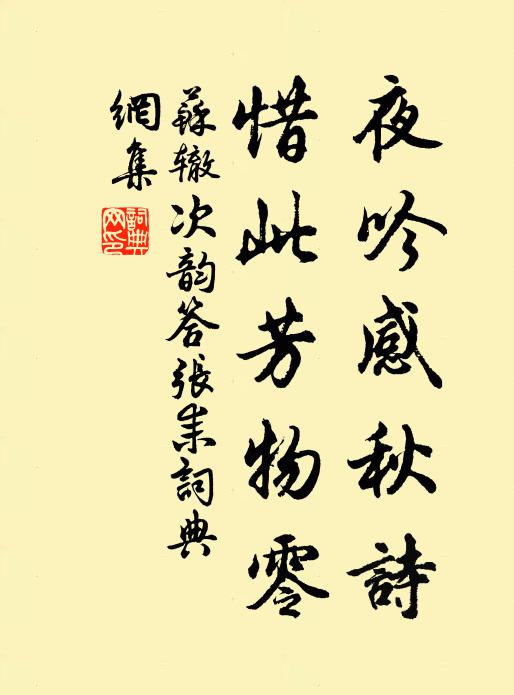 夜吟感秋詩
惜此芳物零
蘇辙次韵答張耒詞典
網集
詞典網印